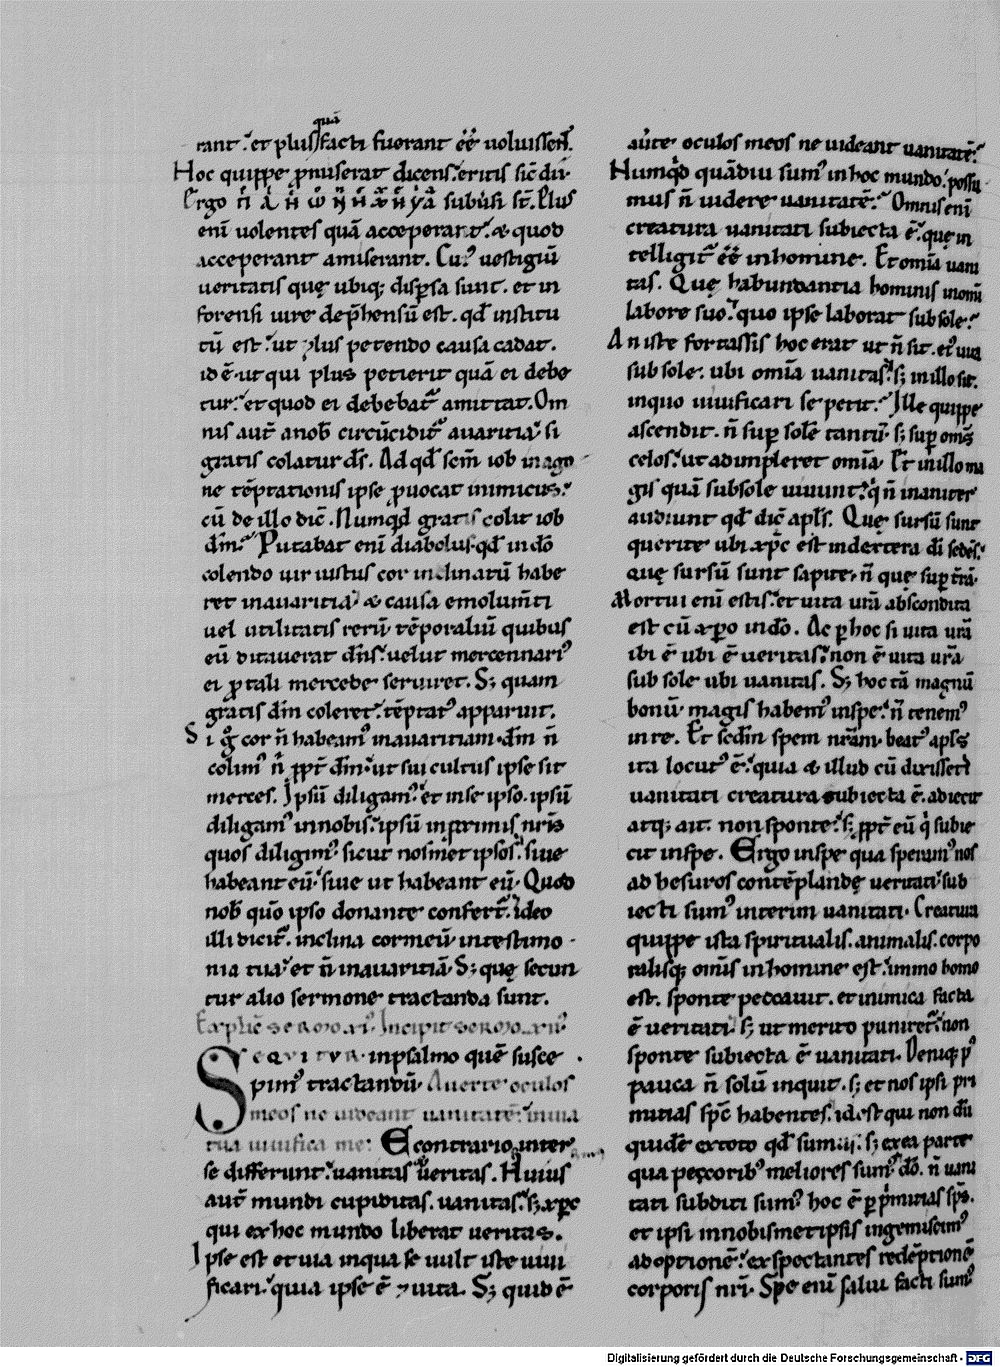 rant. et plus quā facti fuerant eē uoluissent.
Hoc quippe ꝓmiserat dicens. eritis sic dii.
Ergo subuersi st̄. Plus
eni uolentes quā acceperant. & quod
acceperant amiserant. Cuiꝰ uestigiū
ueritatis quę ubiq; dispersa sunt. et in
forensi iure dep̄hensū est. qd̄ institu
tū est. ut plus petendo causa cadat.
id ē. ut qui plus petierit quā ei debe
tur. et quod ei debebat̄ amittat. Om
nis aut̄ a nob̄ circūcidit̄ auaritia. si
gratis colatur ds̄. Ad qd̄ scm̄ iob in ago
ne tēptationis ipse ꝓuocat inimicus.
cū de illo dic̄. Numqd̄ gratis colit iob
dm̄. Putabat eni diabolus. qd̄ in dō
colendo uir iustus cor inclinatū habe
ret in auaritia. & causa emolum̄ti
uel utilitatis rerū tēporaliū quibus
eū ditauerat dn̄s. uelut mercennariꝰ
ei ꝓ tali mercede seruiret. S; quam
gratis dm̄ coleret. tēptatꝰ apparuit.
Si gͦ cor n̄ habeamꝰ in auaritiam. dm̄ n̄
colimꝰ n̄ ꝓpt̄ dm̄. ut sui cultus ipse sit
merces. Ipsū diligamꝰ. et in se ipso. ipsū
diligamꝰ in nobis. ipsū in primis nr̄is
quos diligimꝰ sicut nosmet ipsos. siue
habeant eū. siue ut habeant eū. Quod
nob̄ quo ipso donante confert̄. ideo
illi dicit̄. inclina cor meū in testimo
nia tua. et n̄ in auaritiā. S; quę secun
tur alio sermone tractanda sunt.
Explic̄ sermo .xi. Incipit sermo .xii.
SEQVITVR in psalmo quē susce
pimꝰ tractandū. Auerte oculos
meos ne uideant uanitatē. in uia
tua uiuifica me. E contrario inter
se differunt. uanitas & ueritas. Huius
aut̄ mundi cupiditas. uanitas. s; xp̄c
qui ex hoc mundo liberat ueritas.
Ipse est et uia in qua se uult iste uiui
ficari. quia ipse ē & uita. S; quid ē
au̅te oculos meos ne uideant uanitatē.
Numqd̄ quādiu sumꝰ in hoc mundo. possu
mus n̄ uidere uanitatē. Omnis eni
creatura uanitati subiecta ē. quę in
telligit̄ eē in homine. Et omīa uani
tas. Quę habundantia hominis in omi
labore suo. quo ipse laborat sub sole.
An iste fortassis hoc erat ut n̄ sit. et uita
sub sole. ubi omīa uanitas. s; in illo sit.
in quo uiuificari se petit. Ille quippe
ascendit. n̄ sup̄ solē tantū. s; sup̄ oms̄
celos. ut adinpleret omīa. Et in illo ma
gis quā sub sole uiuunt. q̇ n̄ inaniter
audiunt qd̄ dic̄ apls̄. Quę sursū sunt
querite ubi xp̄c est in dextera dī sedēs.
quę sursū sunt sapite. n̄ quę sup̄ t̄rā.
Mortui eni estis. et uita urā abscondita
est cū xp̄o in dō. Ac p̄ hoc si uita urā
ibi ē ubi ē ueritas. non ē uita urā
sub sole ubi uanitas. S; hoc tā magnū
bonū. magis habemꝰ in spe. n̄ tenemꝰ
in re. Et scdm̄ spem nrām. beatꝰ apls̄
ita locutꝰ ē. quia & illud cū dixisset
uanitati creatura subiecta ē. adiecit
atq; ait. non sponte. s; ꝓpt̄ eū q̇ subie
cit in spe. Ergo in spe qua speramꝰ nos
ad hesuros contēplandę ueritati. sub
iecti sumꝰ interim uanitati. Creatura
quippe ista spiritualis. animalis. corpo
ralisq; omīs in homine est. immo homo
est. sponte peccauit. et inimica facta
ē ueritati. s; ut merito puniret̄. non
sponte subiecta ē uanitati. Deniq; pꝰ
pauca n̄ solū inquit. s; et nos ipsi pri
mitias spc̄ habentes. id est qui non dū
quidē ex toto qd̄ sumus. s; ex ea parte
qua peccoribꝰ meliores sumꝰ dō. n̄ uani
tati subditi sumꝰ hoc ē p̄ p̄mitias sp̄s.
et ipsi in nobismet ipsis ingemiscimꝰ
adoptionē. exspectantes redēptionē
corporis nr̄i. Spe eni salui facti sumꝰ
Digitalisierung gefördert durch die Deutsche Forschungsgemeinschaft - DFG